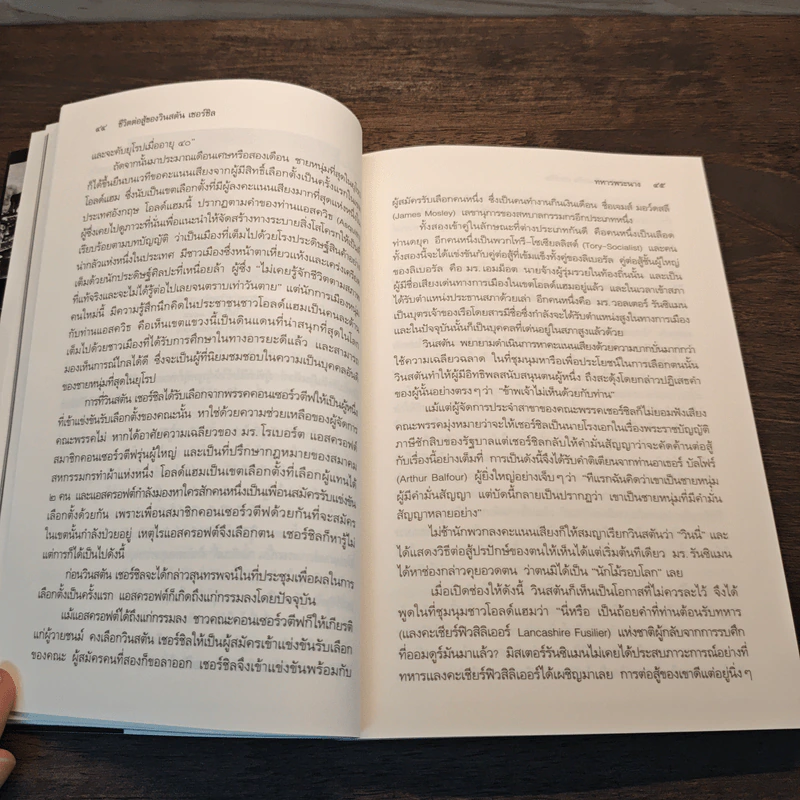 ๔๔ ชีวิตต่อสู้ของวินสตัน เชอร์ชิล
และจะคับยุโรปเมื่ออายุ ๔๐"
ถัดจากนั้นมาประมาณเดือนเศษหรือสองเดือน ชายหนุ่มที่สุดในยุโรป
ก็ได้ขึ้นยืนบนเวทีขอคะแนนเสียงจากผู้มีสิทธิ์เลือกตั้งเป็นครั้งแรกใน
โอลด์แฮม ซึ่งนับเป็นเขตเลือกตั้งที่มีผู้ลงคะแนนเสียงมากที่สุดแห่งหนึ่ง
ประเทศอังกฤษ โอลด์แฮมนี้ ปรากฏตามคำของท่านแอสควิธ
ผู้ซึ่งเคยไปดูภาวะที่นั่นเพื่อแนะนำให้จัดสร้างทางระบายสิ่งโสโครกให้เป็น
เรียบร้อยตามบทบัญญัติ ว่าเป็นเมืองที่เต็มไปด้วยโรงประดิษฐ์สินค้าอย่าง
น่ากลัวแห่งหนึ่งในประเทศ มีชาวเมืองซึ่งหน้าตาเหี่ยวแห้งและเคร่งเครียด
เต็มด้วยนักประดิษฐ์ศิลปะที่เหนื่อยล้า ผู้ซึ่ง "ไม่เคยรู้จักชีวิตตามสภาพ
ที่แท้จริงและจะไม่ได้รู้ต่อไปเลยจนตราบเท่าวันตาย" แต่นักการเมืองหนุ่ม
คนใหม่นี้ มีความรู้สึกนึกคิดในประชาชนชาวโอลด์แฮมเป็นคนละด้าน
กับท่านแอสควิธ คือเห็นเขตแขวงนี้เป็นดินแดนที่น่าสนุกที่สุดในโลก
เต็มไปด้วยชาวเมืองที่ได้รับการศึกษาในทางอารยะดีแล้ว และสามารถ
มองเห็นการณ์ไกลได้ดี ซึ่งจะเป็นผู้ที่นิยมชมชอบในความเป็นบุคคลอันดี
ของชายหนุ่มที่สุดในยุโรป
การที่วินสตัน เชอร์ชิลได้รับเลือกจากพรรคคอนเซอร์วตีฟให้เป็นผู้หนึ่ง
ที่เข้าแข่งขันรับเลือกตั้งของคณะนั้น หาใช่ด้วยความช่วยเหลือของผู้จัดการ
คณะพรรคไม่ หากได้อาศัยความเฉลียวของ มร. โรเบอร์ต แอสครอฟต์
สมาชิกคอนเซอร์วตีฟรุ่นผู้ใหญ่ และเป็นที่ปรึกษากฎหมายของสมาคม
สหกรรมกรทำผ้าแห่งหนึ่ง โอลด์แฮมเป็นเขตเลือกตั้งที่เลือกผู้แทนได้
๒ คน และแอสครอฟต์กำลังมองหาใครสักคนหนึ่งเป็นเพื่อนสมัครรับแข่งขัน
เลือกตั้งด้วยกัน เพราะเพื่อนสมาชิกคอนเซอร์วตีฟด้วยกันที่จะสมัคร
ในเขตนั้นกำลังป่วยอยู่ เหตุไรแอสครอฟต์จึงเลือกตน เชอร์ชิลก็หารู้ไม่
แต่การก็ได้เป็นไปดังนี้
ก่อนวินสตัน เชอร์ชิลจะได้กล่าวสุนทรพจน์ในที่ประชุมเพื่อผลในการ
เลือกตั้งเป็นครั้งแรก แอสครอฟต์ก็เกิดถึงแก่กรรมลงโดยปัจจุบัน
แม้แอสครอฟต์ได้ถึงแก่กรรมลง ชาวคณะคอนเซอร์วตีฟก็ให้เกียรติ
แก่ผู้วายชนม์ คงเลือกวินสตัน เชอร์ชิลให้เป็นผู้สมัครเข้าแข่งขันรับเลือก
ของคณะ ผู้สมัครคนที่สองก็ขอลาออก เชอร์ชิลจึงเข้าแข่งขันพร้อมกับ
ทหารพระนาง ๔๕
ผู้สมัครรับเลือกคนหนึ่ง ซึ่งเป็นคนทำงานกินเงินเดือน ชื่อเจมส์ มอว์ดสลี
(James Mosley) เลขานุการของสหบาลกรรมกรอีกประเภทหนึ่ง
ทั้งสองเข้าคู่ในลักษณะที่ต่างประเภทกันดี คือคนหนึ่งเป็นเลือด
ท่านดยุค อีกคนหนึ่งเป็นพวกโทรี-โซเชียลลิสต์ (Tory-Socialist) และคน
ทั้งสองนี้จะได้แข่งขันกับคู่ต่อสู้ที่เข้มแข็งทั้งคู่ของลิเบอรัล คู่ต่อสู้ชั้นผู้ใหญ่
ของลิเบอรัล คือ มร. เอมม็อต นายจ้างผู้รุ่มรวยในท้องถิ่นนั้น และเป็น
ผู้มีชื่อเสียงเด่นทางการเมืองในเขตโอลด์แฮมอยู่แล้ว และในเวลาเข้าสภา
ได้รับตำแหน่งประธานสภาด้วยเล่า อีกคนหนึ่งคือ มร. วอลเตอร์ รันซิแมน
เป็นบุตรเจ้าของเรือโดยสารมีชื่อซึ่งกำลังจะได้รับตำแหน่งสูงในทางการเมือง
และในปัจจุบันนั้นก็เป็นบุคคลที่เด่นอยู่ในสภาสูงแล้วด้วย
วินสตัน พยายามดำเนินการหาคะแนนเสียงด้วยความบากบั่นมากกว่า
ใช้ความเฉลียวฉลาด ในที่ชุมนุมหารือเพื่อประโยชน์ในการเลือกตนนั้น
วินสตันทำให้ผู้มีอิทธิพลสนับสนุนตนผู้หนึ่ง ถึงสะดุ้งโดยกล่าวปฏิเสธคำ
ของผู้นั้นอย่างตรงๆ ว่า "ข้าพเจ้าไม่เห็นด้วยกับท่าน"
แม้แต่ผู้จัดการประจำสาขาของคณะพรรคเชอร์ชิลก็ไม่ยอมฟังเสียง
คณะพรรคมุ่งหมายว่าจะให้เชอร์ชิลเป็นนายโรงเอกในเรื่องพระราชบัญญัติ
ภาษีชักสิบของรัฐบาลแต่เชอร์ชิลกลับให้คำมั่นสัญญาว่าจะคัดค้านต่อสู้
กับเรื่องนี้อย่างเต็มที่ การเป็นดังนี้จึงได้รับคำติเตียนจากท่านอาเธอร์ บัลโฟร์
(Arthur Balfour) ผู้ยิ่งใหญ่อย่างเจ็บๆ ว่า "ทีแรกฉันคิดว่าเขาเป็นชายหนุ่ม
ผู้มีคำมั่นสัญญา แต่บัดนี้กลายเป็นปรากฏว่า เขาเป็นชายหนุ่มที่มีคำมั่น
สัญญาหลายอย่าง"
ไม่ช้านักพวกลงคะแนนเสียงก็ให้สมญาเรียกวินสตันว่า "วินนี่" และ
ได้แสดงวิธีต่อสู้ปรปักษ์ของตนให้เห็นได้แต่เริ่มต้นทีเดียว มร. รันซิแมน
ได้หาช่องกล่าวคุยอวดตน ว่าตนมิได้เป็น "นักโม้รอบโลก" เลย
เมื่อเปิดช่องให้ดังนี้ วินสตันก็เห็นเป็นโอกาสที่ไม่ควรละไว้ จึงได้
พูดในที่ชุมนุมชาวโอลด์แฮมว่า "นี่หรือ เป็นถ้อยคำที่ท่านต้อนรับทหาร
(แลงคะเชียร์ฟิวสิลิเออร์ Lancashire Fusilier) แห่งชาติผู้กลับจากการรบศึก
ที่ออมดูร์มันมาแล้ว? มิสเตอร์รันซิแมนไม่เคยได้ประสบภาวะการณ์อย่างที่
ทหารแลงคะเชียร์ฟิวสิลิเออร์ได้เผชิญมาเลย การต่อสู้ของเขาดีแต่อยู่นิ่งๆ